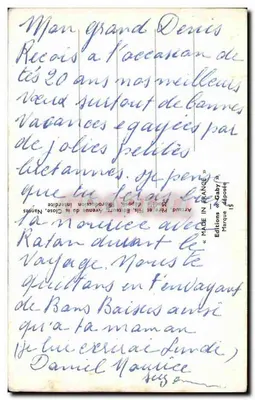 Mon grand Denis
Recois a l'occasion de
tes 20 ans nos meilleurs
vœux surtout de bonnes
vacances egayées par
de jolies petites
bretonnes. Je pense
que tu feras
ta nourice avec
Ratan durant le
voyage. Nous te
quittons en t'envoyant
de Bons Baisers ainsi
qu'a ta maman
(je lui ecrirai Lundi)
Daniel Maurice
« MADE IN FRANCE »
Editions « Gaby »
Marque déposée
15
Artaud Père et Fils, Editeurs, Avenue de la Close, Nantes
Reproduction Interdite